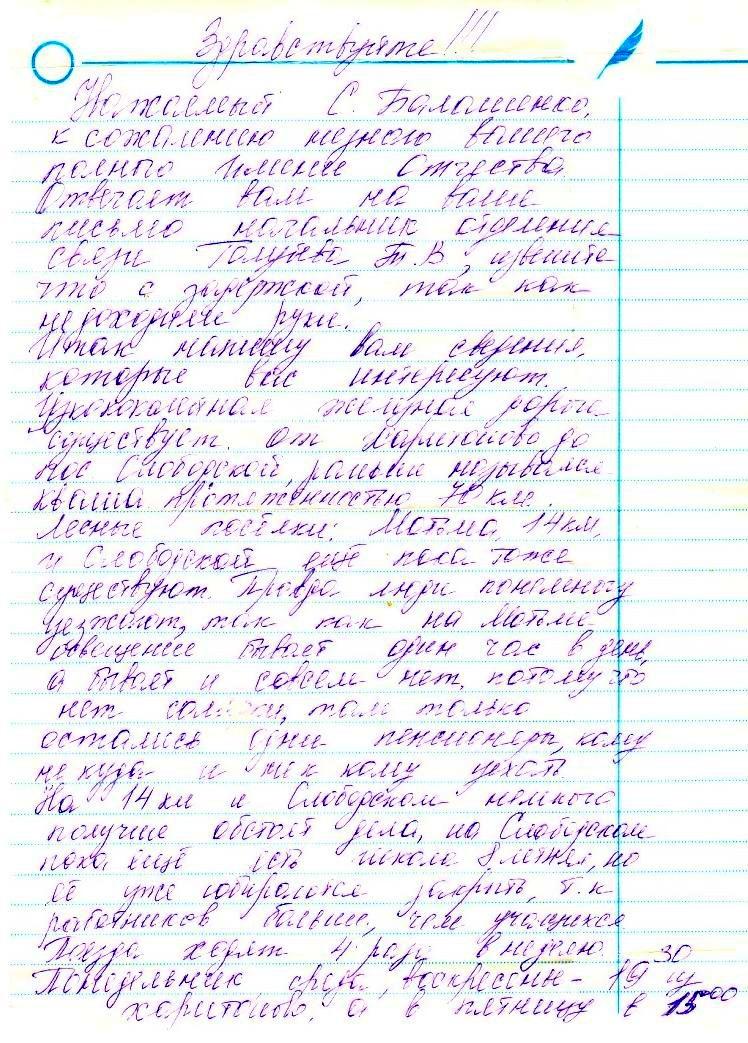 Здравствуйте!!!
Уважаемый С. Балашенко,
к сожалению незнаю вашего
полного имение Отчества.
Отвечает вам на ваше
письмо начальник отделения
связи Т.В, извените
что с задержкой, так как
недоходили руки.
Итак напишу вам сведения,
которые вас интересуют.
Узкоколейная железная дорога
существует. от Харитоново до
пос Слободской, раньше назывался
Кваша протяженностью 70 км.
Лесные посёлки: Мотьма, 14 км,
и Слободской ещё пока тоже
существуют. Правда люди понемногу
уезжают, так как на Мотьме
освещение бывает один час в день,
а бывает и совсем нет, потому что
нет солярки, там только
остались одни пенсионеры, кому
некуда и не к кому уехать
На 14 км и Слободском немного
получше обстоят дела, на Слободском
пока ещё есть школа 8 летняя, но
её уже собираются закрыть, т.к
работников больше, чем учащихся
Поезда ходят 4 раза в неделю.
Понедельник среда, воскресенье - 19 30 из
Харитоново, а в пятницу в 15 00